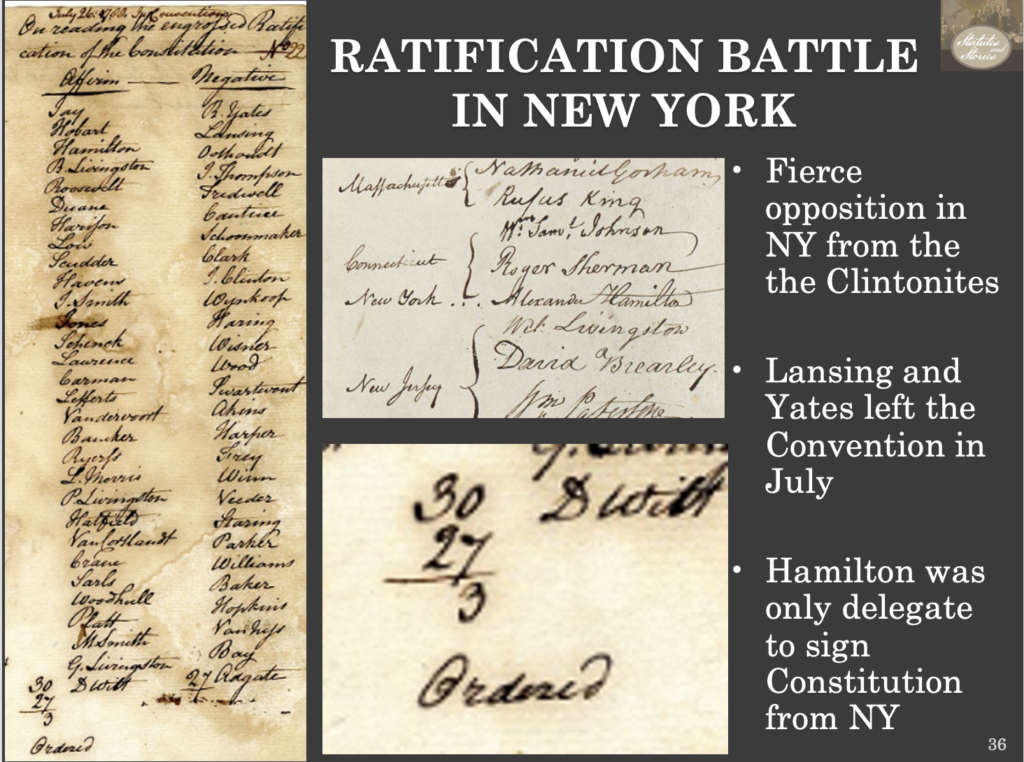 July 26. 1788. In Convention
On reading the engrossed Ratifi
cation of the Constitution No 22
Affirm
Jay
Hobart
Hamilton
R. Livingston
Roosevelt
Duane
Harison
Low
Scudder
Havens
J. Smith
Jones
Schenck
Lawrence
Carman
Lefferts
Vandervoort
Bancker
Ryerss
L. Morris
P. Livingston
Hatfield
VanCortlandt
Crane
Sarls
Woodhull
Platt
M. Smith
G. Livingston
D Witt
30
27
3
Ordered
Negative
R. Yates
Lansing
Oothoudt
J. Thompson
Tredwell
Cantine
Schoonmaker
Clark
J. Clinton
Wynkoop
Haring
Wisner
Wood
Swartwout
Akins
Harper
Frey
Winn
Veeder
Staring
Parker
Williams
Baker
Hopkins
VanNess
Bay
27 Adgate
RATIFICATION BATTLE
IN NEW YORK
Statutes
and
Stories
Massachusetts
Nathaniel Gorham
Rufus King
Connecticut
Wm. Saml. Johnson
Roger Sherman
New York . . . Alexander Hamilton
New Jersey
Wil. Livingston
David Brearley.
Wm Paterson
30 D Witt
27
3
Ordered
• Fierce
opposition in
NY from the
the Clintonites
• Lansing and
Yates left the
Convention in
July
• Hamilton was
only delegate
to sign
Constitution
from NY
36